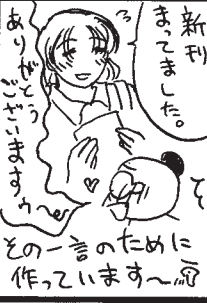 新刊
まってました。
ありがとう
ございますぅ〜
その一言のために
作っています〜